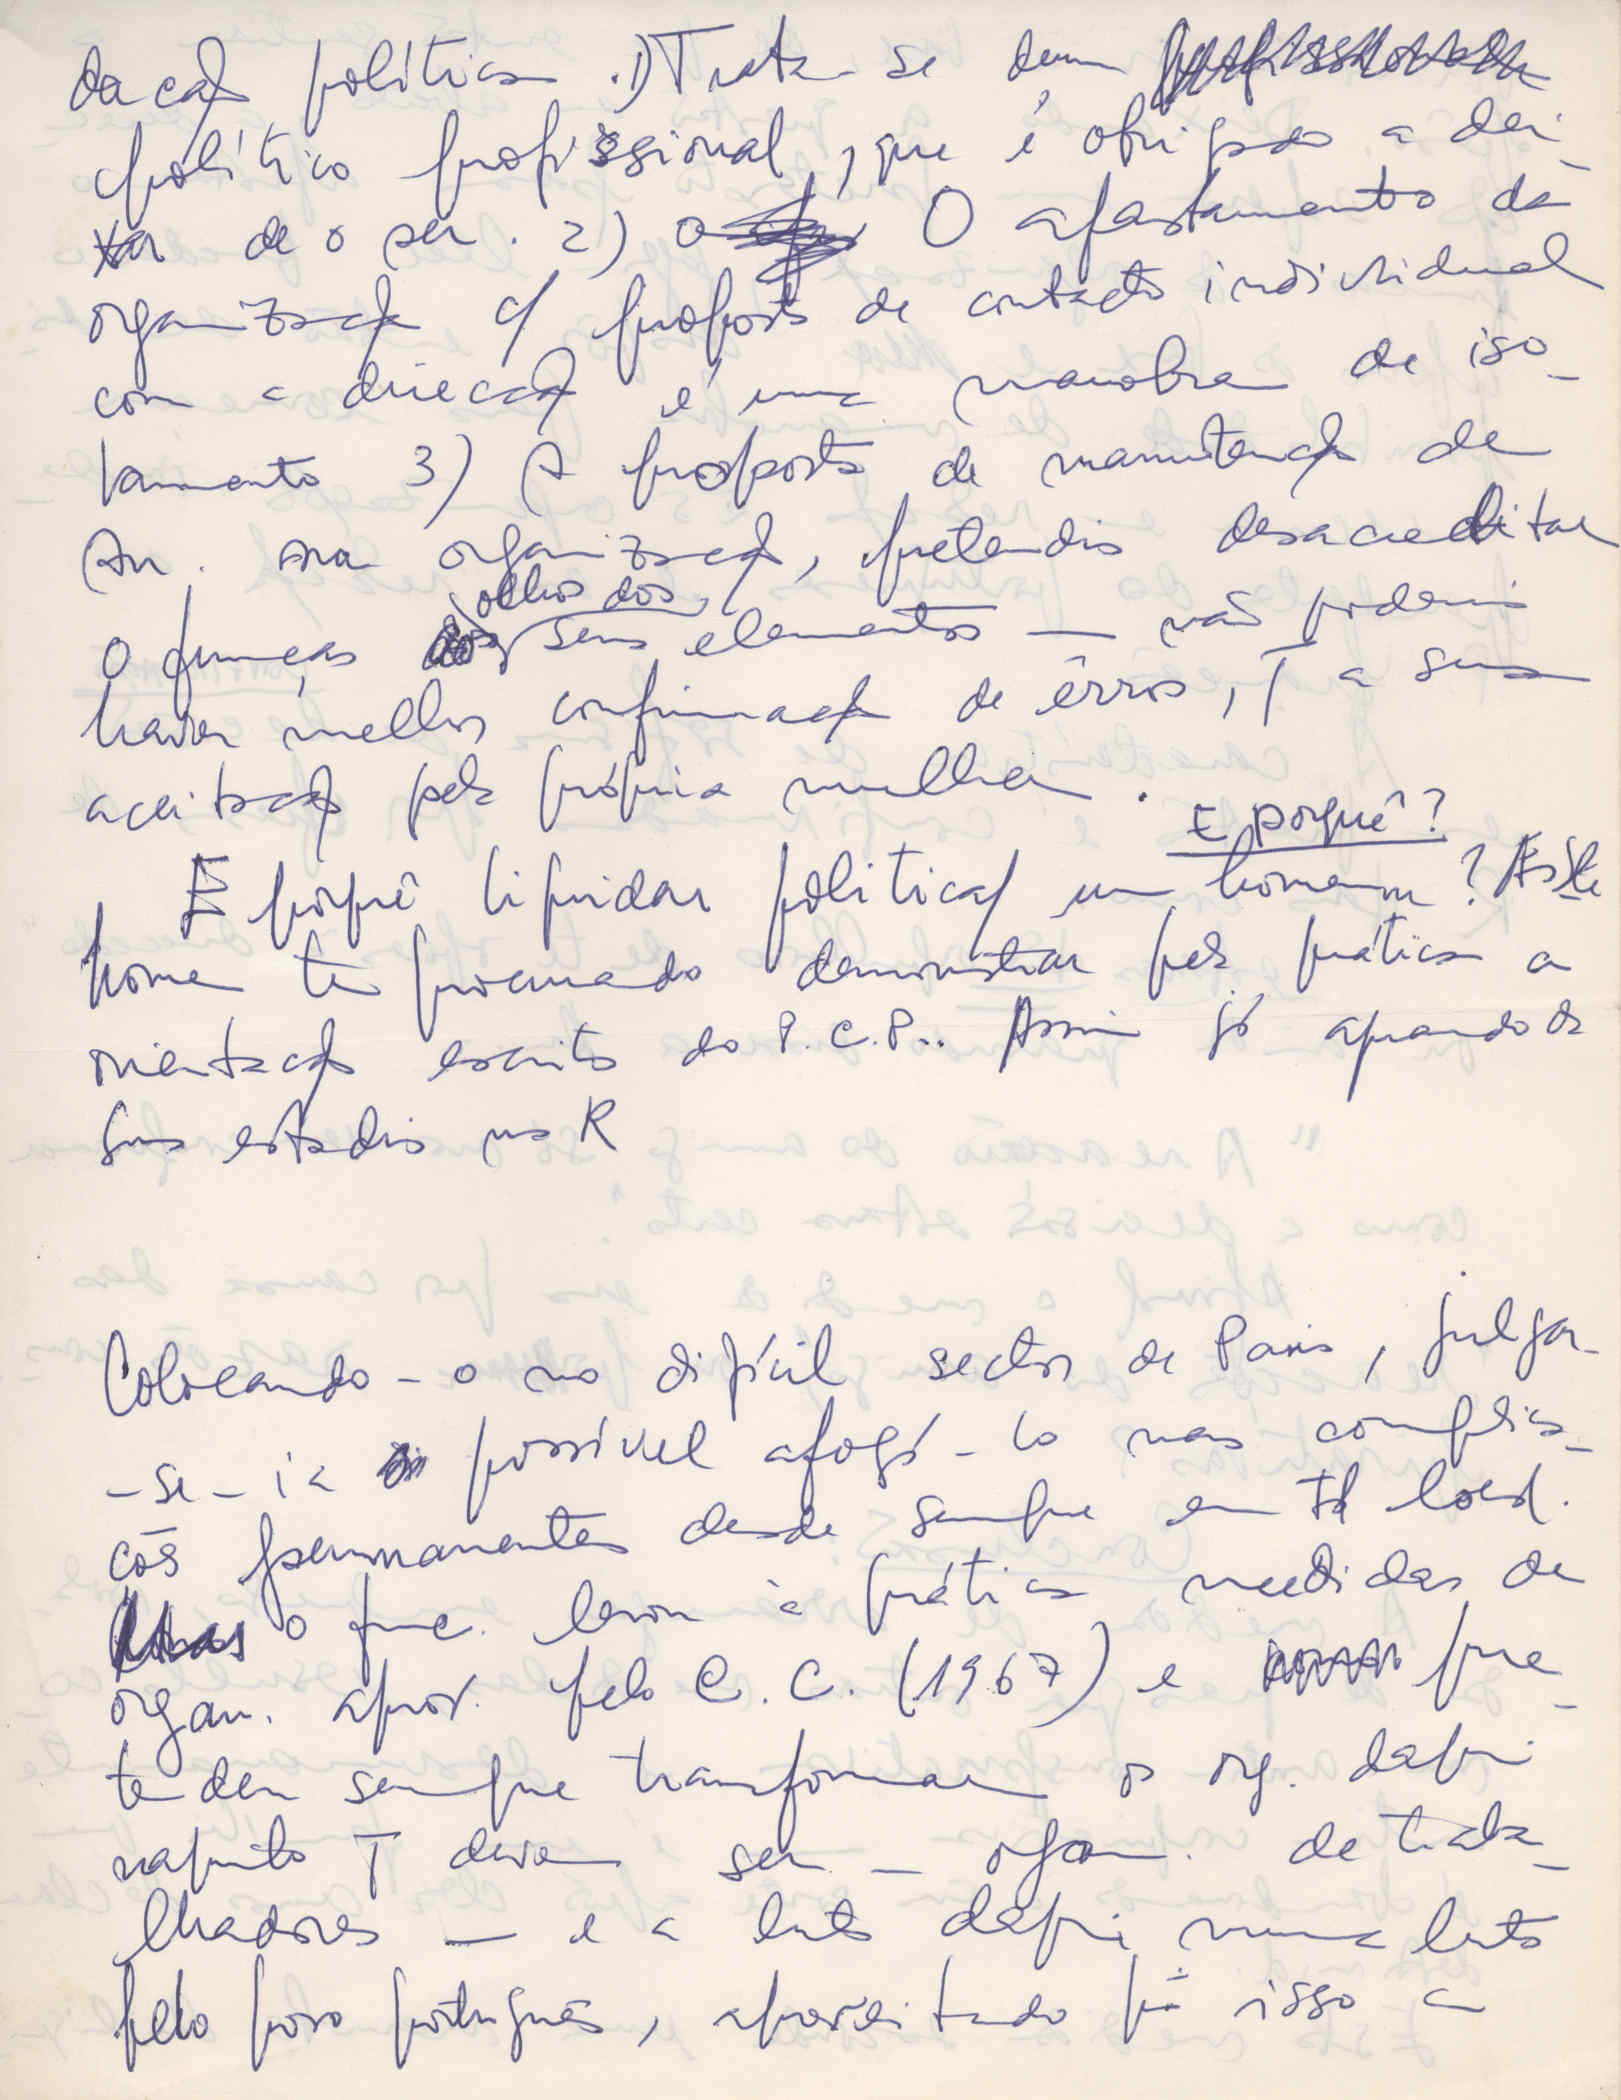 dação política. 1) Trata-se dum
político profissional, que é obrigado a dei-
xar de o ser. 2) O afastamento da
organização c/ proposta de contacto individual
com a direcção é uma manobra de iso-
lamento 3) A proposta de manutenção de
na organização, pretendia desacreditar
o func. aos olhos dos seus elementos — não poderia
haver melhor confirmação de êrros, q a sua
aceitação pela própria mulher.
E porquê?
E porquê liquidar política/ um homem? Este
homem tem procurado demonstrar pela prática a
orientação escrita do P.C.P.. Assim já quando da
sua estadia na R
Colocando-o no difícil sector de Paris, julgar-
-se-ia possível afogá-lo nas complica-
ções permanentes desde sempre em tal local.
Mas o func. levou à prática medidas de
organ. aprov. pelo C.C. (1967) e pre-
tendeu sempre transformar a org. daqui
naquilo q deve ser — organ. de traba-
lhadores — e a luta daqui numa luta
pelo povo português, aproveitando pª isso a